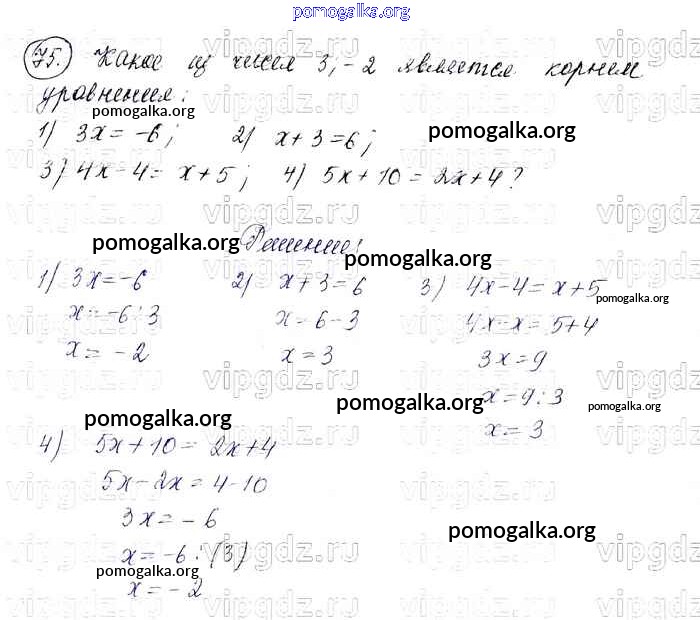 pomogalka.org
75. Какое из чисел 3; -2 является корнем
уравнения:
1) 3x = -6; 2) x + 3 = 6;
pomogalka.org
3) 4x - 4 = x + 5; 4) 5x + 10 = 2x + 4?
Решение:
pomogalka.org
pomogalka.org
1) 3x = -6 2) x + 3 = 6 3) 4x - 4 = x + 5
pomogalka.org
x = -6 : 3 x = 6 - 3 4x - x = 5 + 4
pomogalka.org
x = -2 x = 3 3x = 9
x = 9 : 3
pomogalka.org
pomogalka.org
pomogalka.org
x = 3
4) 5x + 10 = 2x + 4
5x - 2x = 4 - 10
3x = -6
pomogalka.org
x = -6 : (3)
pomogalka.org
x = -2
vipgdz.ru